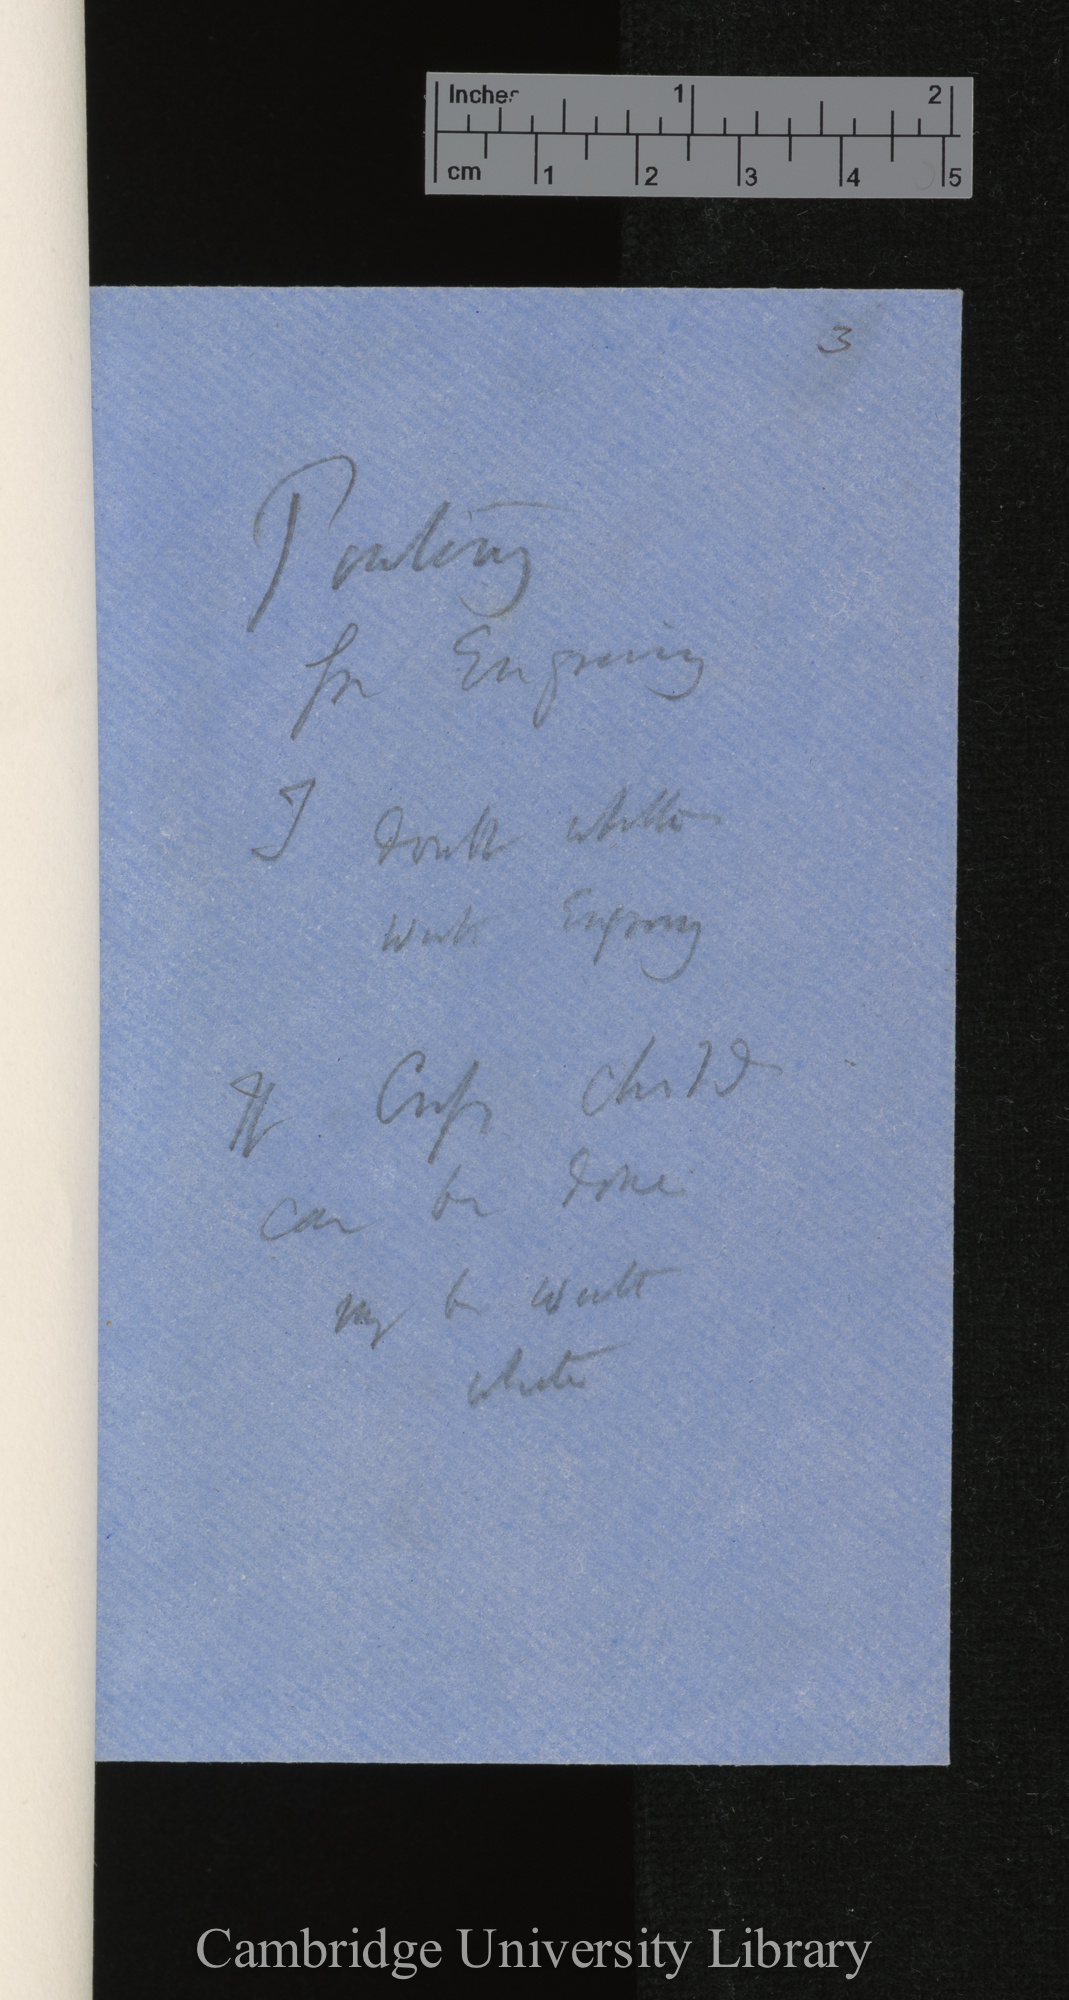 Inches 1 2
cm 1 2 3 4 5
3
Pouting
for Engraving
I doubt whether
worth Engraving
If Cry child
can be done
may be worth
whiter
Cambridge University Library